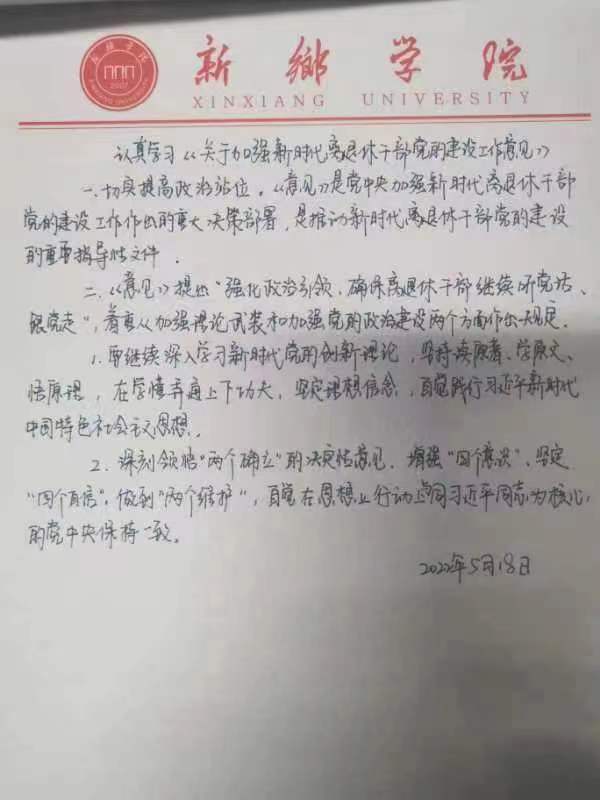 新鄉学院
XINXIANG UNIVERSITY
认真学习《关于加强新时代离退休干部党的建设工作意见》
一.切实提高政治站位,《意见》是党中央加强新时代离退休干部
党的建设工作作出的重大决策部署,是推动新时代离退休干部党的建设
的重要指导性文件.
二.《意见》提出“强化政治引领,确保离退休干部继续听党话、
跟党走”,着重从加强理论武装和加强党的政治建设两个方面作出规定.
1.要继续深入学习新时代党的创新理论,坚持读原著、学原文、
悟原理,在学懂弄通上下功夫,坚定理想信念,自觉践行习近平新时代
中国特色社会主义思想.
2.深刻领悟“两个确立”的决定性意见,增强“四个意识”、坚定
“四个自信”,做到“两个维护”,自觉在思想上行动上同习近平同志为核心
的党中央保持一致。
2022年5月18日